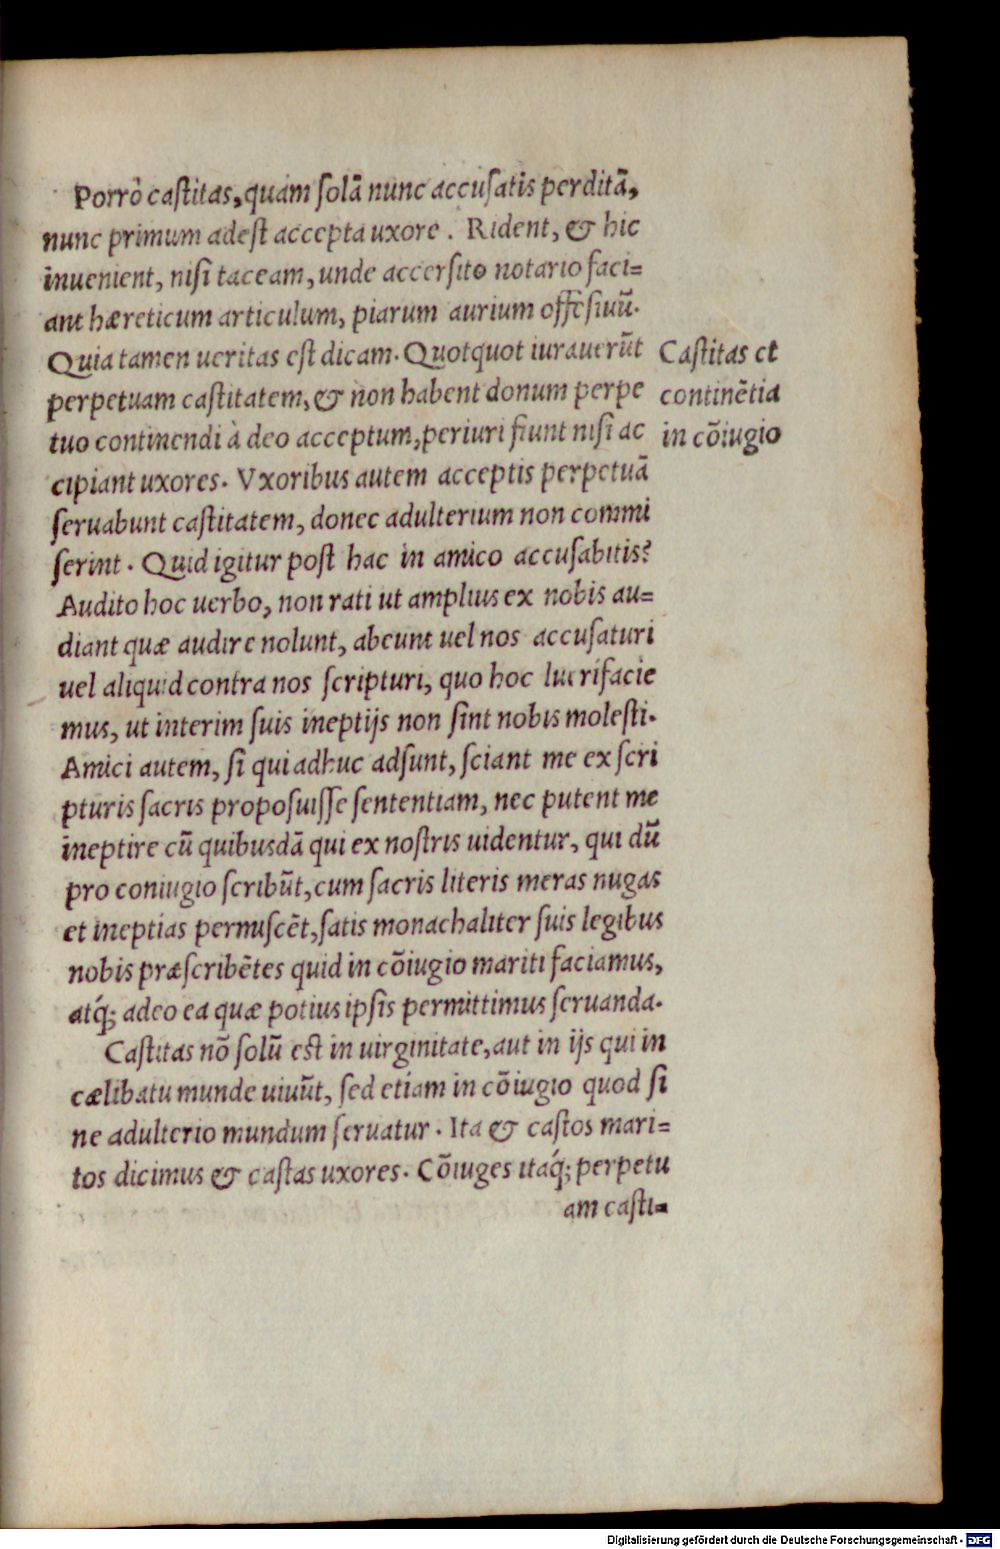 Porrò castitas, quam solā nunc accusatis perditā,
nunc primum adest accepta uxore. Rident, & hic
inuenient, nisi taceam, unde accersito notario faci=
ant hæreticum articulum, piarum aurium offēsiuū.
Quia tamen ueritas est dicam. Quotquot iurauerūt
perpetuam castitatem, & non habent donum perpe
tuo continendi à deo acceptum, periuri fiunt nisi ac
cipiant uxores. Vxoribus autem acceptis perpetuā
seruabunt castitatem, donec adulterium non commi
serint. Quid igitur post hac in amico accusabitis?
Audito hoc uerbo, non rati ut amplius ex nobis au=
diant quæ audire nolunt, abeunt uel nos accusaturi
uel aliquid contra nos scripturi, quo hoc lucrifacie
mus, ut interim suis ineptijs non sint nobis molesti.
Amici autem, si qui adhuc adsunt, sciant me ex scri
pturis sacris proposuisse sententiam, nec putent me
ineptire cū quibusdā qui ex nostris uidentur, qui dū
pro coniugio scribūt, cum sacris literis meras nugas
et ineptias permiscēt, satis monachaliter suis legibus
nobis præscribētes quid in cōiugio mariti faciamus,
atq́; adeo ea quæ potius ipsis permittimus seruanda.
Castitas nō solū est in uirginitate, aut in ijs qui in
cælibatu munde uiuūt, sed etiam in cōiugio quod si
ne adulterio mundum seruatur. Ita & castos mari=
tos dicimus & castas uxores. Cōiuges itaq́; perpetu
am casti=
Castitas et
continētia
in cōiugio
Digitalisierung gefördert durch die Deutsche Forschungsgemeinschaft - DFG